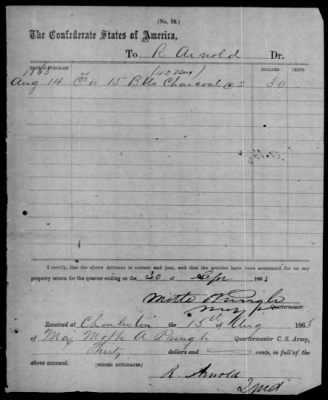 (No. 12.)
The Confederate States of America,
To R Arnold Dr.
DATE OF PURCHASE DOLLARS CENTS
1863
Aug 14 15 Bbls Charcoal @ 2 30
I certify, that the above Account is correct and just, and that the articles have been accounted for on my
property return for the quarter ending on the 30 Sepr 186
Motte A Pringle
Quartermaster
Received at Charleston the 15th of Aug 1863
of Maj Motte A Pringle Quartermaster C. S. Army,
Thirty dollars and cents, in full of the
above account. (SIGNED DUPLICATES)
R Arnold